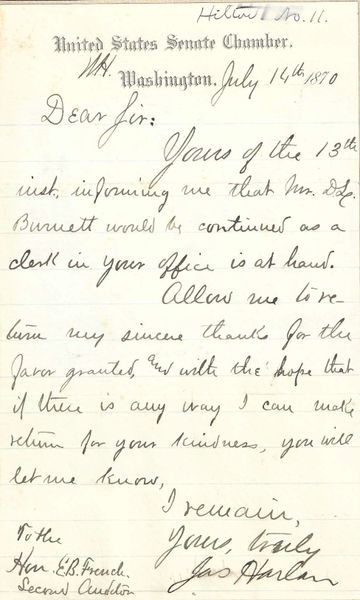 Hilton No. 11.
United States Senate Chamber.
Washington. July 14th 1870
Dear Sir:
Yours of the 13th
inst. informing me that Mr.
Burnett would be continued as a
clerk in your office is at hand.
Allow me to re-
turn my sincere thanks for the
favor granted, and with the hope that
if there is any way I can make
return for your kindness, you will
let me know,
I remain,
Yours, truly
Jas Harlan
To the
Hon. E.B. French.
Second Auditor